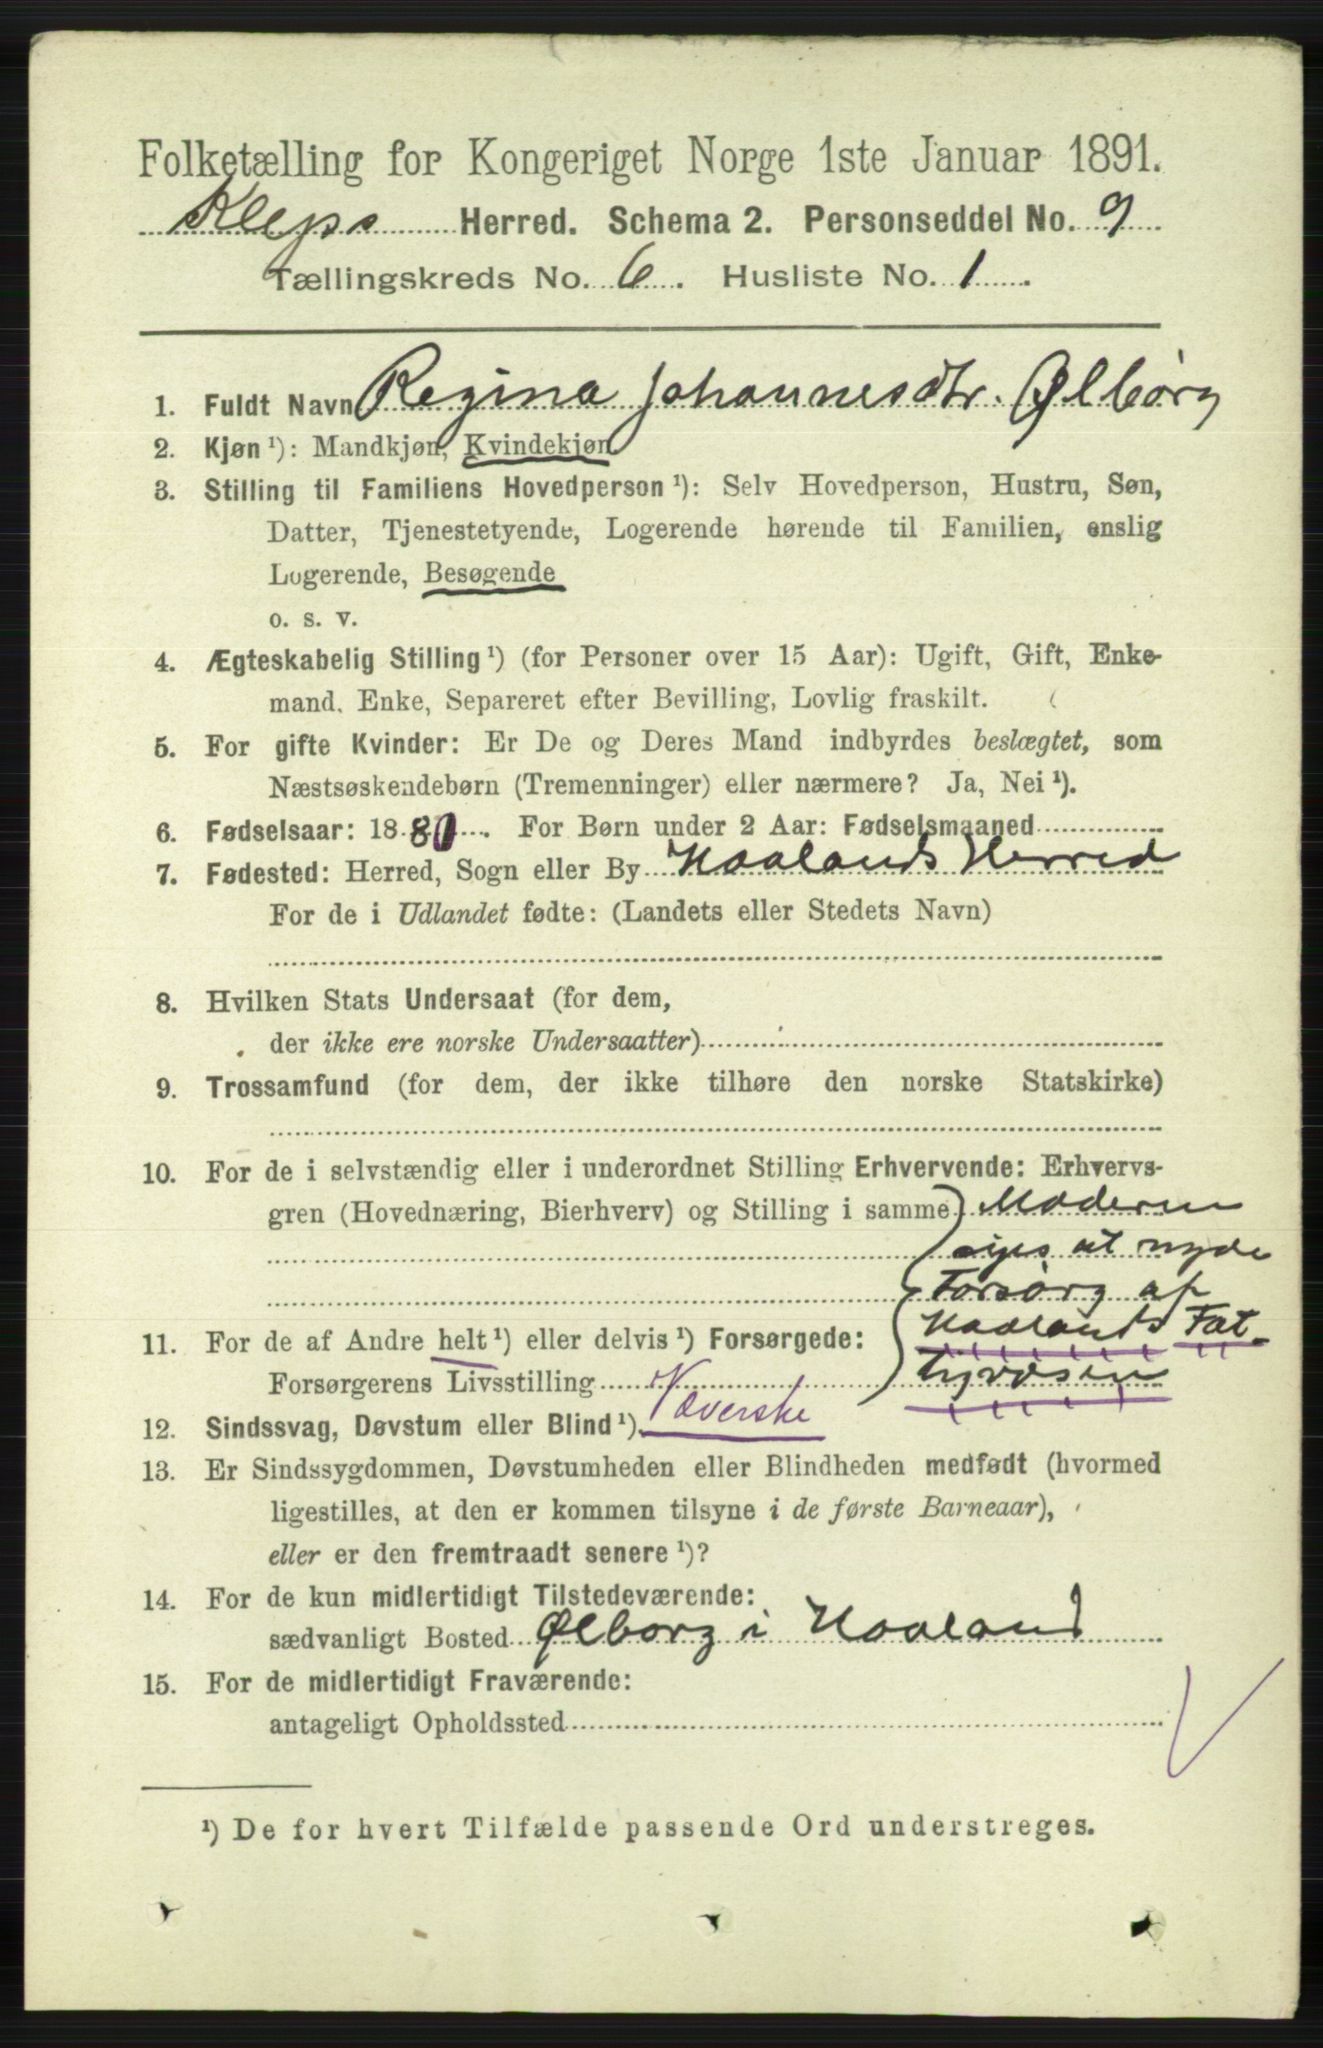 Folketælling for Kongeriget Norge 1ste Januar 1891.
Kleps Herred. Schema 2. Personseddel No. 9
Tællingskreds No. 6. Husliste No. 1.
1. Fuldt Navn Regina Johannesdtr. Ølborg
2. Kjøn ¹): Mandkjøn, Kvindekjøn
3. Stilling til Familiens Hovedperson ¹): Selv Hovedperson, Hustru, Søn,
Datter, Tjenestetyende, Logerende hørende til Familien, enslig
Logerende, Besøgende
o. s. v.
4. Ægteskabelig Stilling ¹) (for Personer over 15 Aar): Ugift, Gift, Enke-
mand, Enke, Separeret efter Bevilling, Lovlig fraskilt.
5. For gifte Kvinder: Er De og Deres Mand indbyrdes beslægtet, som
Næstsøskendebørn (Tremenninger) eller nærmere? Ja, Nei ¹).
6. Fødselsaar: 1880. For Børn under 2 Aar: Fødselsmaaned
7. Fødested: Herred, Sogn eller By Haalands Herred
For de i Udlandet fødte: (Landets eller Stedets Navn)
8. Hvilken Stats Undersaat (for dem,
der ikke ere norske Undersaatter)
9. Trossamfund (for dem, der ikke tilhøre den norske Statskirke)
10. For de i selvstændig eller i underordnet Stilling Erhvervende: Erhvervs-
gren (Hovednæring, Bierhverv) og Stilling i samme Moderen
siges at nyde
Forsørg af
Haalands Fat-
11. For de af Andre helt ¹) eller delvis ¹) Forsørgede:
Forsørgerens Livsstilling Væverske
12. Sindssvag, Døvstum eller Blind ¹).
13. Er Sindssygdommen, Døvstumheden eller Blindheden medfødt (hvormed
ligestilles, at den er kommen tilsyne i de første Barneaar),
eller er den fremtraadt senere ¹)?
14. For de kun midlertidigt Tilstedeværende:
sædvanligt Bosted Ølborg i Haaland
15. For de midlertidigt Fraværende:
antageligt Opholdssted
¹) De for hvert Tilfælde passende Ord understreges.